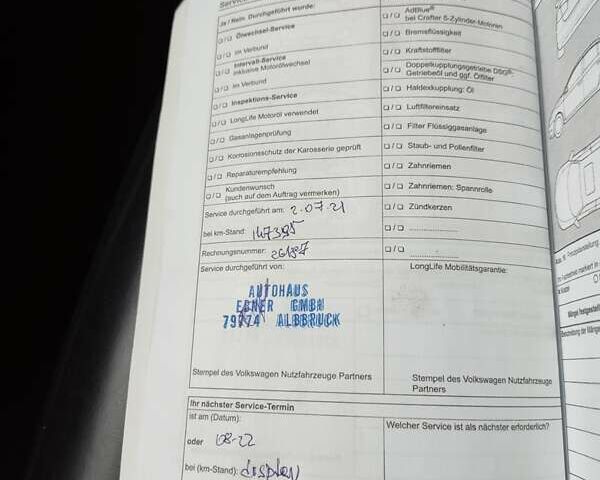 Ja / Nein Durchgeführt wurde:
☐ / ☐ Ölwechsel-Service
☐ / ☐ im Verbund
☐ / ☐ Intervall-Service
inklusive Motorölwechsel
☐ / ☐ im Verbund
☐ / ☐ Inspektions-Service
☐ / ☐ LongLife Motoröl verwendet
☐ / ☐ Gasanlagenprüfung
☐ / ☐ Korrosionsschutz der Karosserie geprüft
☐ / ☐ Reparaturempfehlung
☐ / ☐ Kundenwunsch
(auch auf dem Auftrag vermerken)
Service durchgeführt am: 2.07.21
bei km-Stand: 147395
Rechnungsnummer:
Service durchgeführt von:
AUTOHAUS
EBNER GMBH
79774 ALBBRUCK
Stempel des Volkswagen Nutzfahrzeuge Partners
☐ / ☐ AdBlue®
bei Crafter 5-Zylinder-Motoren
☐ / ☐ Bremsflüssigkeit
☐ / ☐ Kraftstofffilter
☐ / ☐ Doppelkupplungsgetriebe DSG®:
Getriebeöl und ggf. Ölfilter
☐ / ☐ Haldexkupplung: Öl
☐ / ☐ Luftfiltereinsatz
☐ / ☐ Filter Flüssiggasanlage
☐ / ☐ Staub- und Pollenfilter
☐ / ☐ Zahnriemen
☐ / ☐ Zahnriemen: Spannrolle
☐ / ☐ Zündkerzen
☐ / ☐ ....................
☐ / ☐ ....................
LongLife Mobilitätsgarantie:
Stempel des Volkswagen Nutzfahrzeuge
Partners
Ihr nächster Service-Termin
ist am (Datum):
oder 08-22
bei (km-Stand): display
Welcher Service ist als nächster erforderlich?